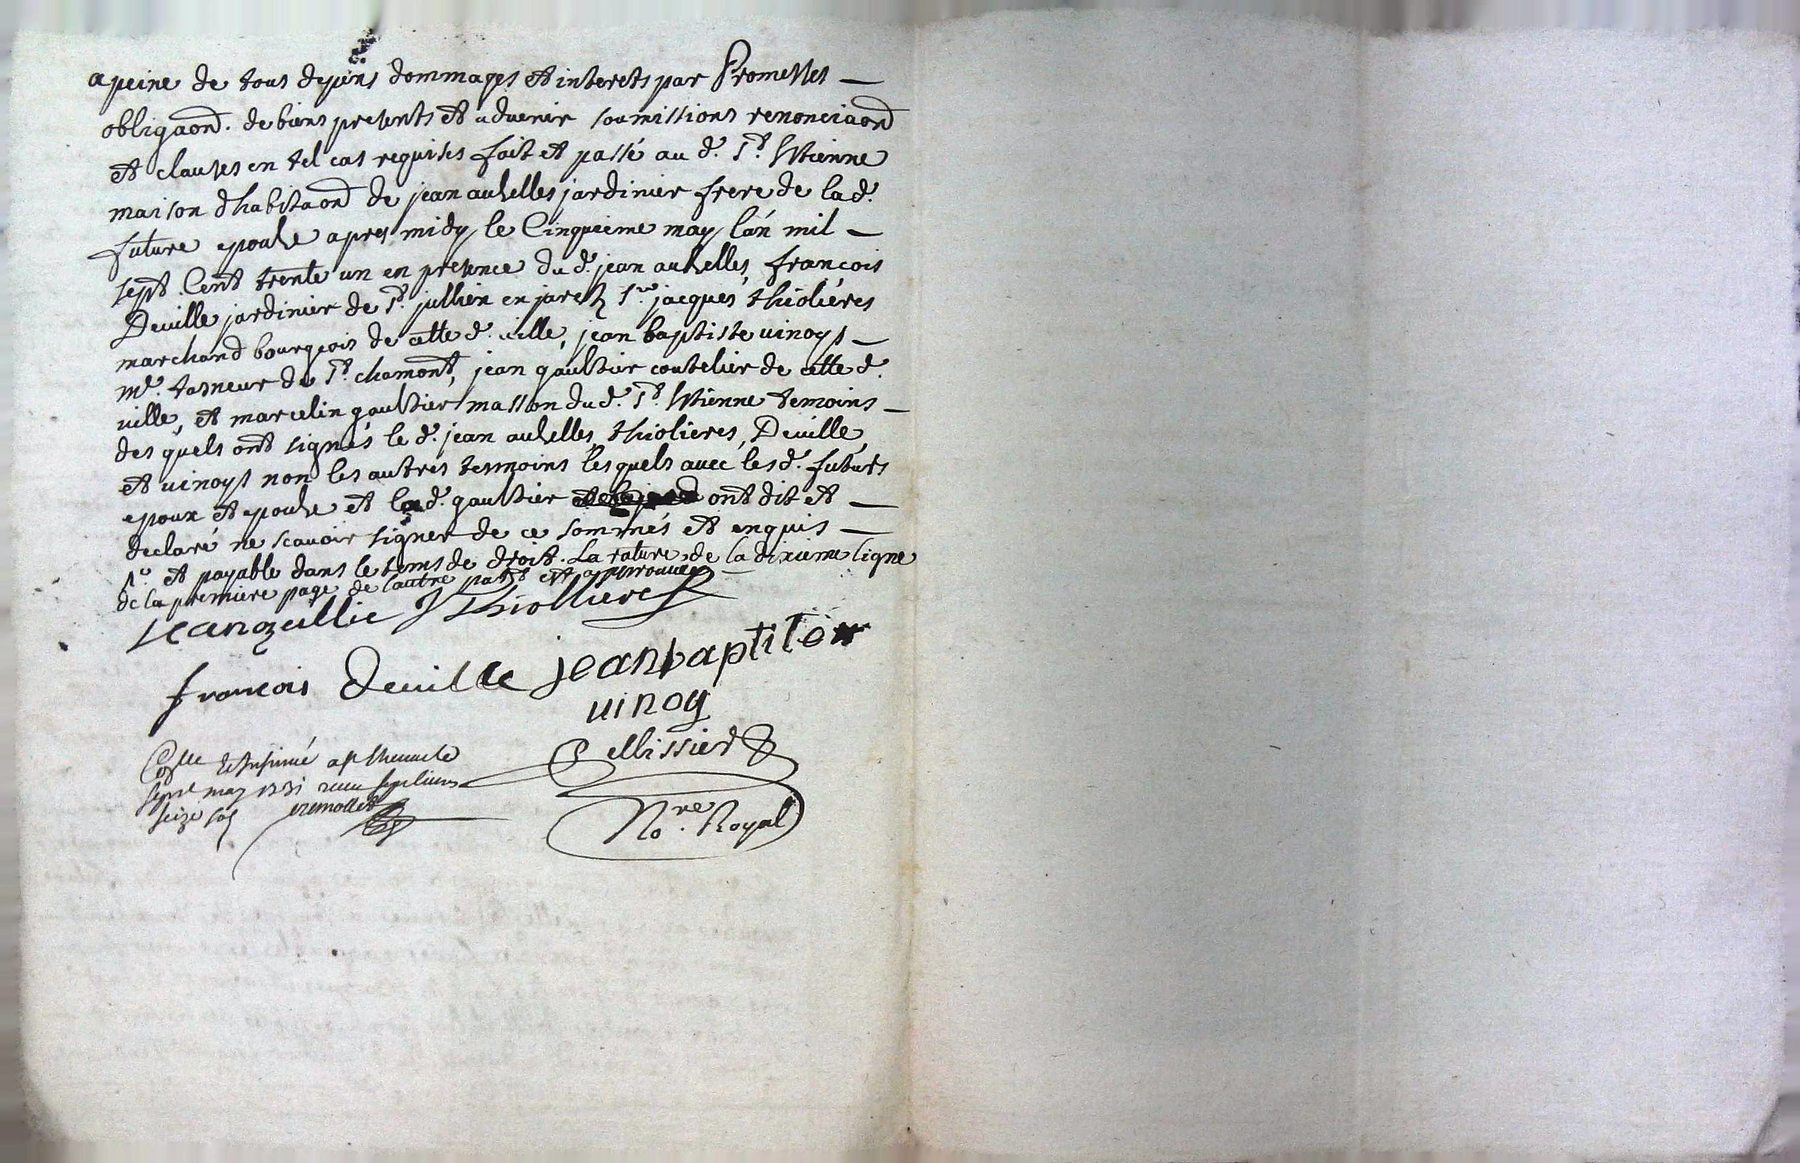 a peine de tous depens dommages et interets par Promesses —
obligaond. de biens presents et advenir soumissions renonciaond
et clauses en tel cas requises fait et passé au d. St. Etienne
maison d'habitaond de jean auzelles jardinier frere de la d.
future epouze apres midy le Cinquieme may l'an mil —
sept Cent trente un en presence du d. jean auzelles, françois
Deville jardinier de St. jullien en jarez Sr. jacques thiolieres
marchand bourgeois de cette d. ville, jean baptiste vinoys —
me. tasneur de St. chamont, jean gaultier coutelier de cette d.
ville, et marcelin gaultier masson du d. St. Etienne temoins —
des quels ont signés le d. jean auzelles, thiolieres, Deville,
et vinoys non les autres tesmoins lesquels avec les d. futurs
epoux et epouze et le d. gaultier ont dit et —
declaré ne scavoir signer de ce sommés et enquis —
et payable dans le tems de droit. La rature de la dixieme ligne
de la premiere page de l'autre part est approuvée
jean ozellie J Thiollieres
françois deville jean baptiste
vinoy
Pellissier
Nore. Royal
Colle et insinué a St Etienne le
sept may 1731 receu sept livres
seize sols